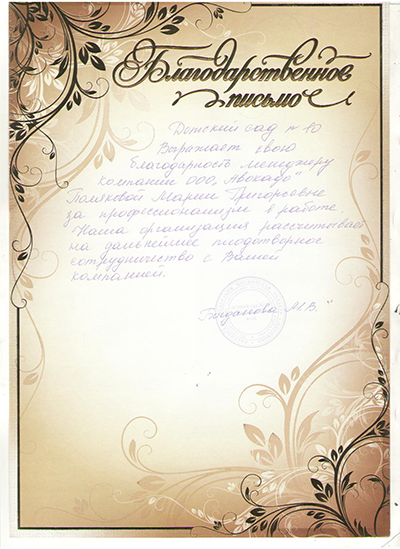 Благодарственное
письмо
Детский сад № 10
Выражает свою
благодарность менеджеру
компании ООО „Авокадо"
Поляковой Марии Григорьевне
за профессионализм в работе.
Наша организация рассчитывает
на дальнейшее плодотворное
сотрудничество с Вашей
компанией.
Богданова М.В.